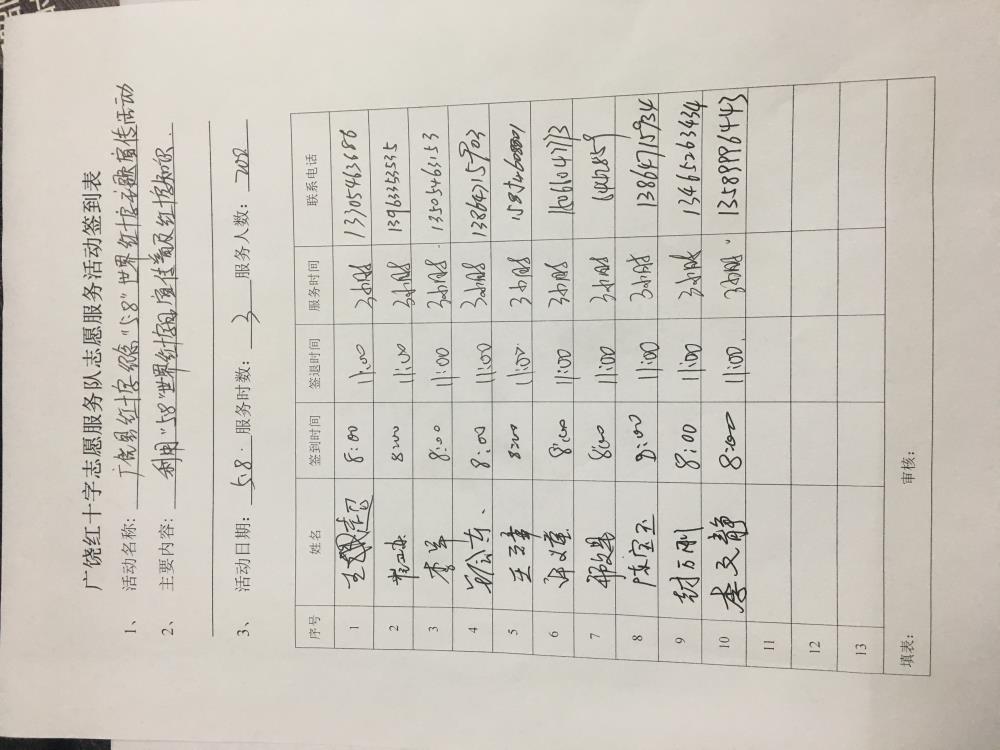 广饶红十字志愿服务队志愿服务活动签到表
1、 活动名称: 广饶县红十字会"5.8"世界红十字日主题宣传活动
2、 主要内容: 利用"5.8"世界红十字日宣传普及红十字知识.
3、 活动日期: 5.8. 服务时数: 3 服务人数: 202
序号 姓名 签到时间 签退时间 服务时间 联系电话
1 8:00 11:00 3小时 13305463686
2 8:00 11:00 3小时 13963353535
3 李军 8:00 11:00 3小时. 13505463153
4 8:00 11:00 3小时 13864715903
5 8:00 11:00. 3小时
6 8:00 11:00 3小时
7 8:00 11:00 3小时 6440859
8 陈宝玉 8:00 11:00 3小时 13864715934
9 封万刚 8:00 11:00 3小时 13465263434
10 李文静 8:00 11:00. 3小时. 13589996443
11
12
13
填表: 审核: